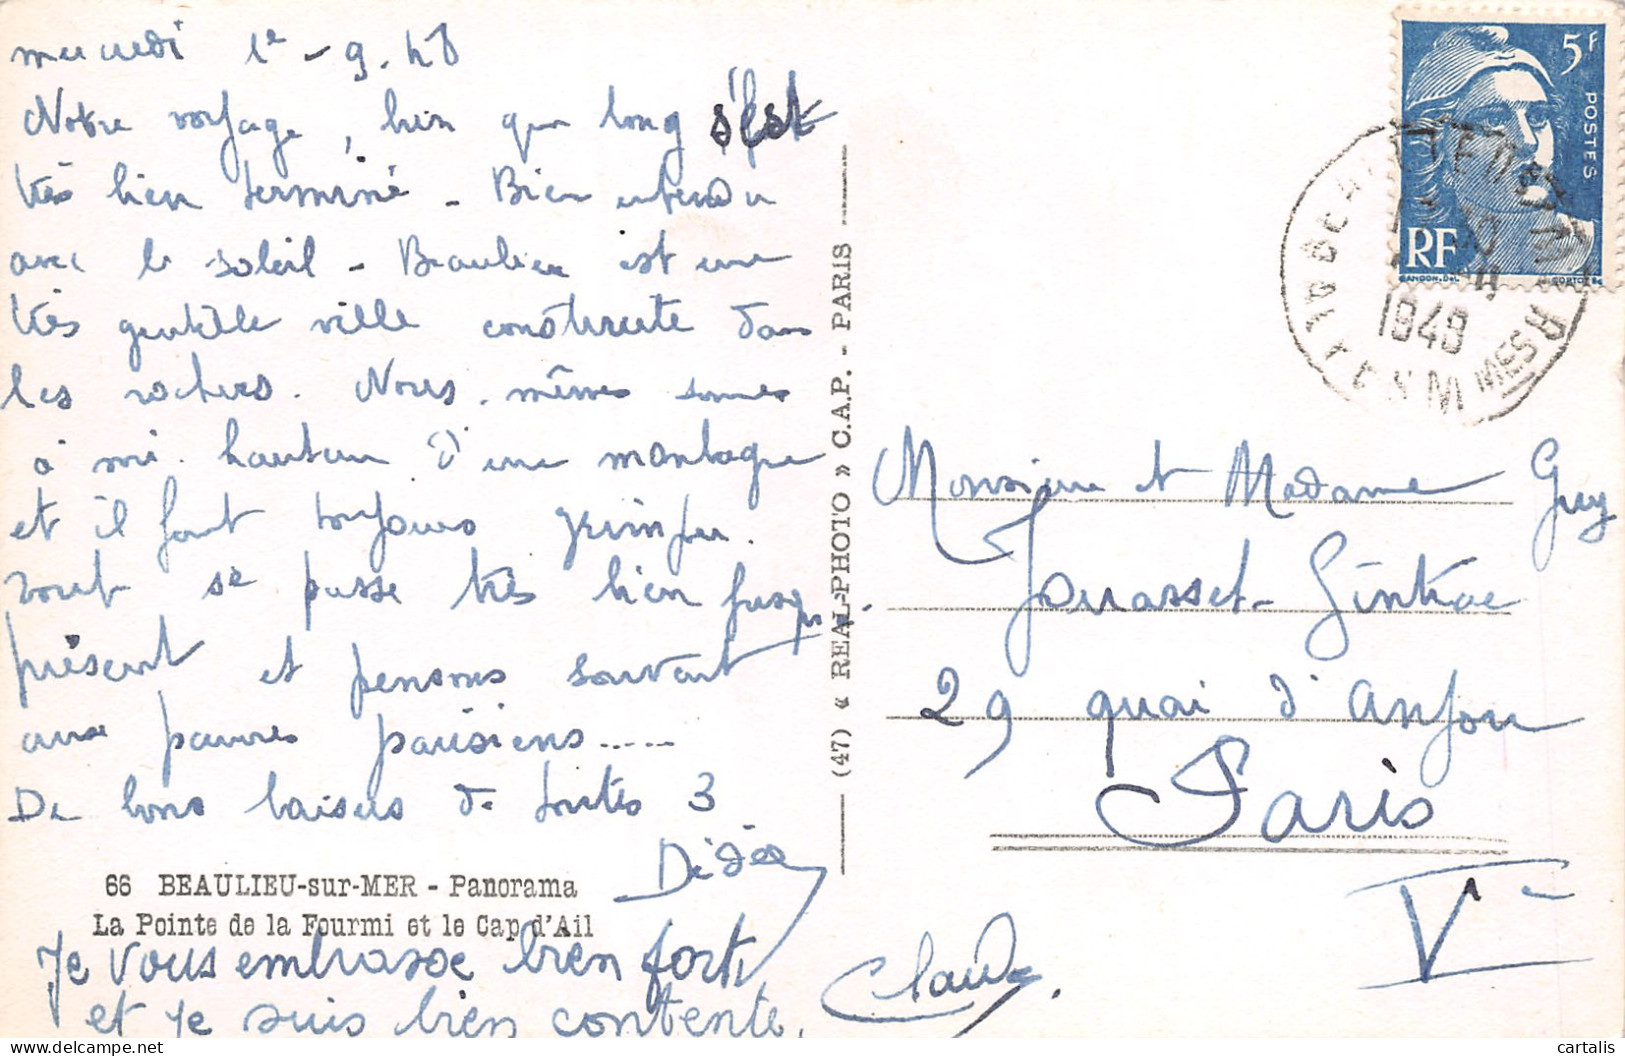 mercredi 1e - 9.48
Notre voyage, bien que long s'est
très bien terminé - Bien entendu
avec le soleil - Beaulieu est une
très gentille ville construite dans
les rochers. Nous-mêmes sommes
à mi-hauteur d'une montagne
et il faut toujours grimper.
Tout se passe très bien jusqu'
présent et pensons souvent
aux pauvres parisiens......
De bons baisers de toutes 3
Dédée
66 BEAULIEU-sur-MER - Panorama
La Pointe de la Fourmi et le Cap d'Ail
Je vous embrasse bien fort
et je suis bien contente.
Claude.
(47) « REAL-PHOTO » C.A.P. - PARIS
5F
POSTES
RF
GANDON.Del
CORTOT Sc
1948
Monsieur et Madame Guy
Jouasset-Gintrac
29 quai d'Anjou
Paris
Ve
cartalis